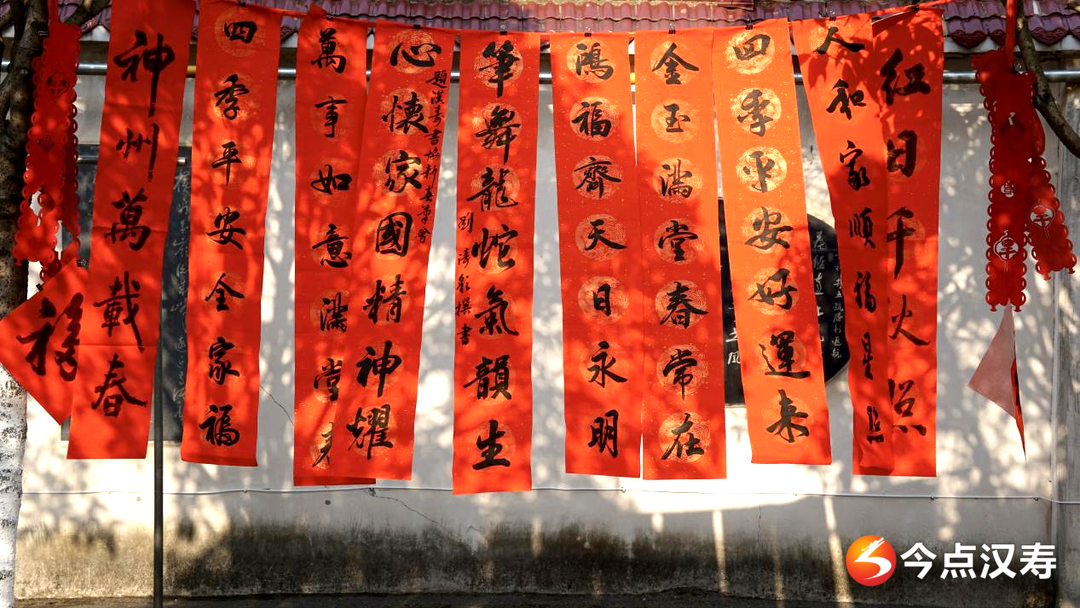 神州萬載春
四季平安全家福
萬事如意滿堂
心懷家國精神耀
筆舞龍蛇氣韻生
鴻福齊天日永明
金玉滿堂春常在
四季平安好運來
人和家順福星照
紅日千火照
福
今点汉寿